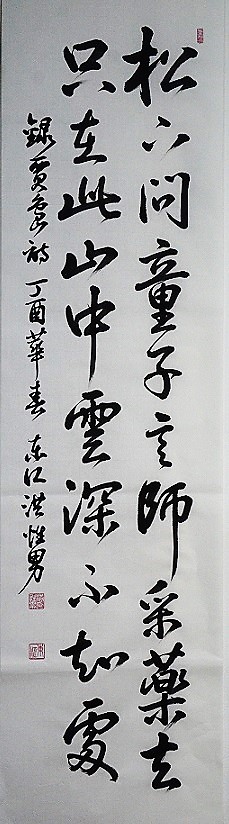 松下問童子言師采藥去
只在此山中雲深不知處
錄賈島詩丁酉華春東江洪性男